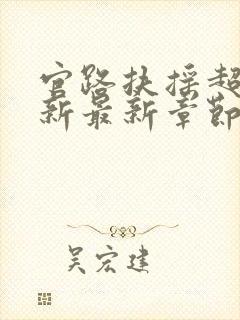 官路扶摇超
新最新章节
吴宏建